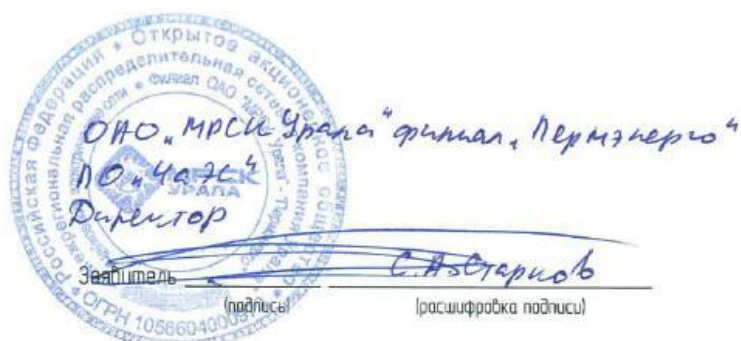 Российская Федерация * Открытое акционерное общество
межрегиональная распределительная сетевая компания Урала
филиал ОАО "МРСК Урала" - "Пермэнерго"
МРСК
УРАЛА
ОГРН 105660400097
ОАО „МРСК Урала" филиал „Пермэнерго"
ПО „ЧаЭС"
Директор
Заявитель С.А. Старков
(подпись) (расшифровка подписи)